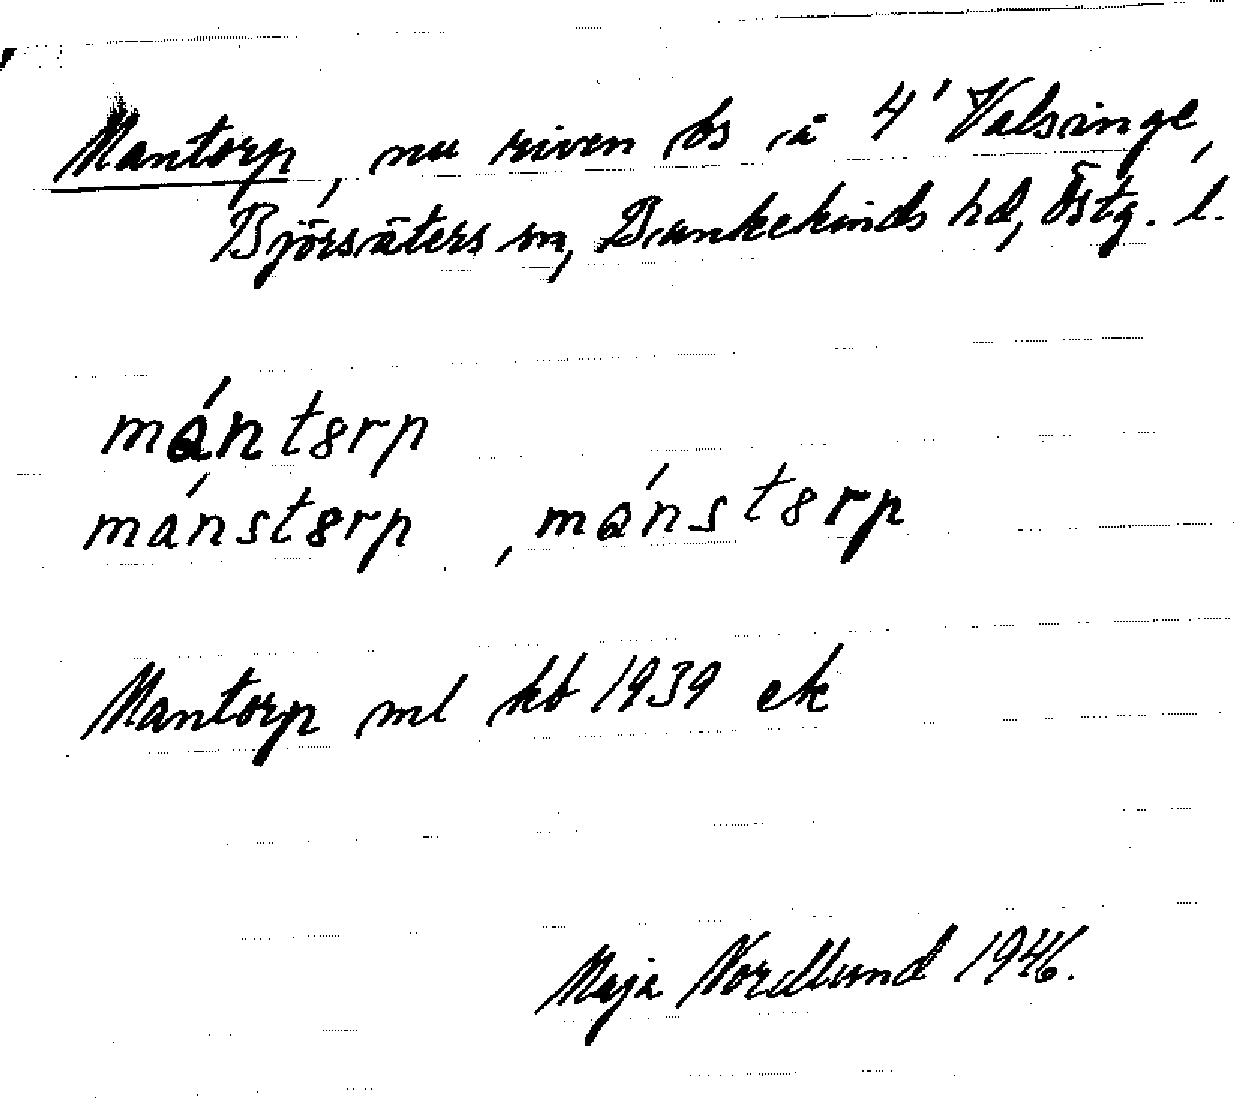 Mantorp, nu riven bs å 4' Valsinge,
Björsäters sn, Bankekinds hd, Östg. l.
mántɵrp
mánstɵrp , mánstɵrp
Mantorp ml kb 1939 ek
Maja Nordlund 1946.